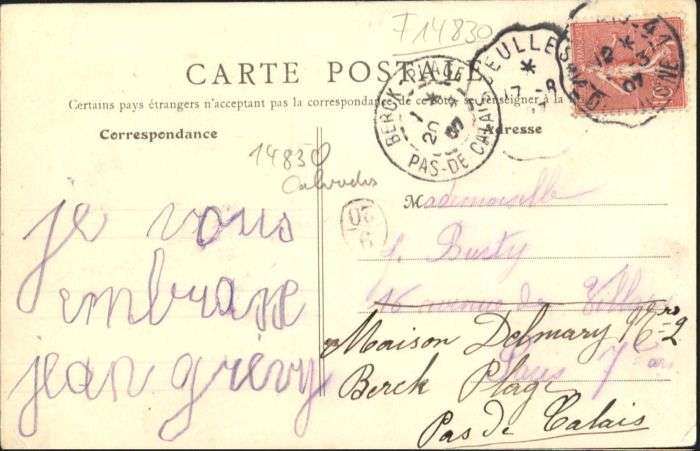 F14830
CARTE POSTALE
Certains pays étrangers n'acceptant pas la correspondance de se renseigner à la
Correspondance
Adresse
BERCK PLAGE
20
07
PAS-DE CALAIS
12 *
07
14830
Calvados
Mademoiselle
16 avenue de
7
Maison Delmary
Berck Plage
Pas de Calais
je vous
embrasse
jean grévy